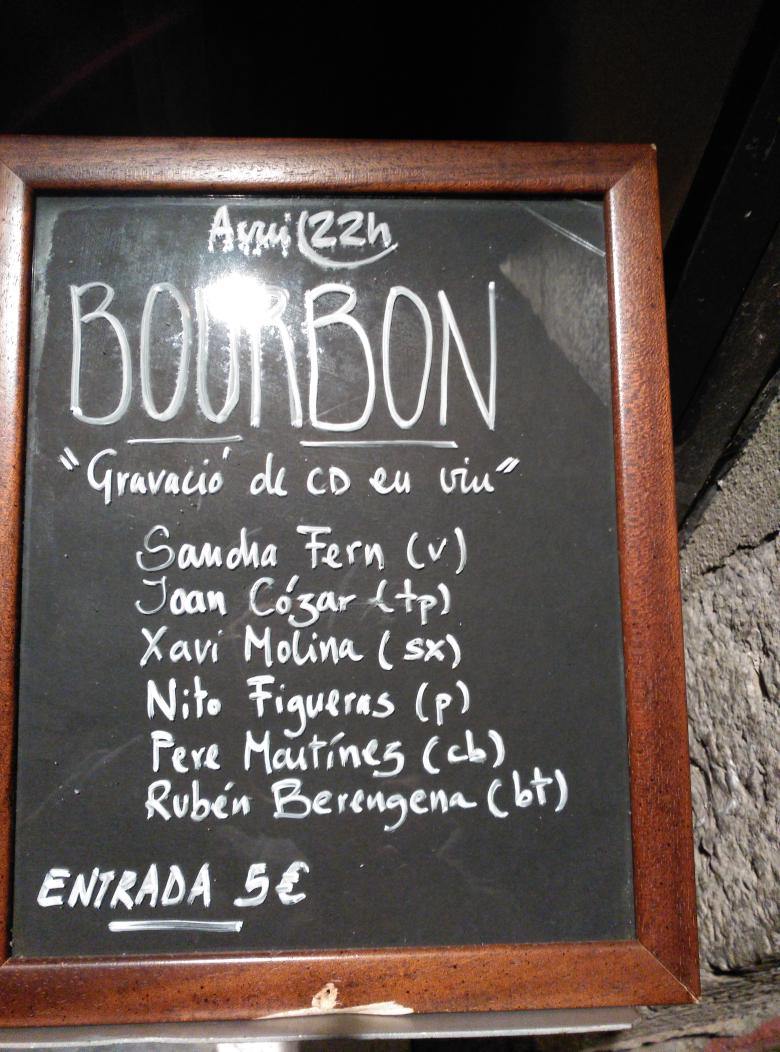 Avui 22h
BOURBON
"Gravació de CD en viu"
Sandra Fern (v)
Joan Cózar (tp)
Xavi Molina (sx)
Nito Figueras (p)
Pere Martínez (cb)
Rubén Berengena (bt)
ENTRADA 5€